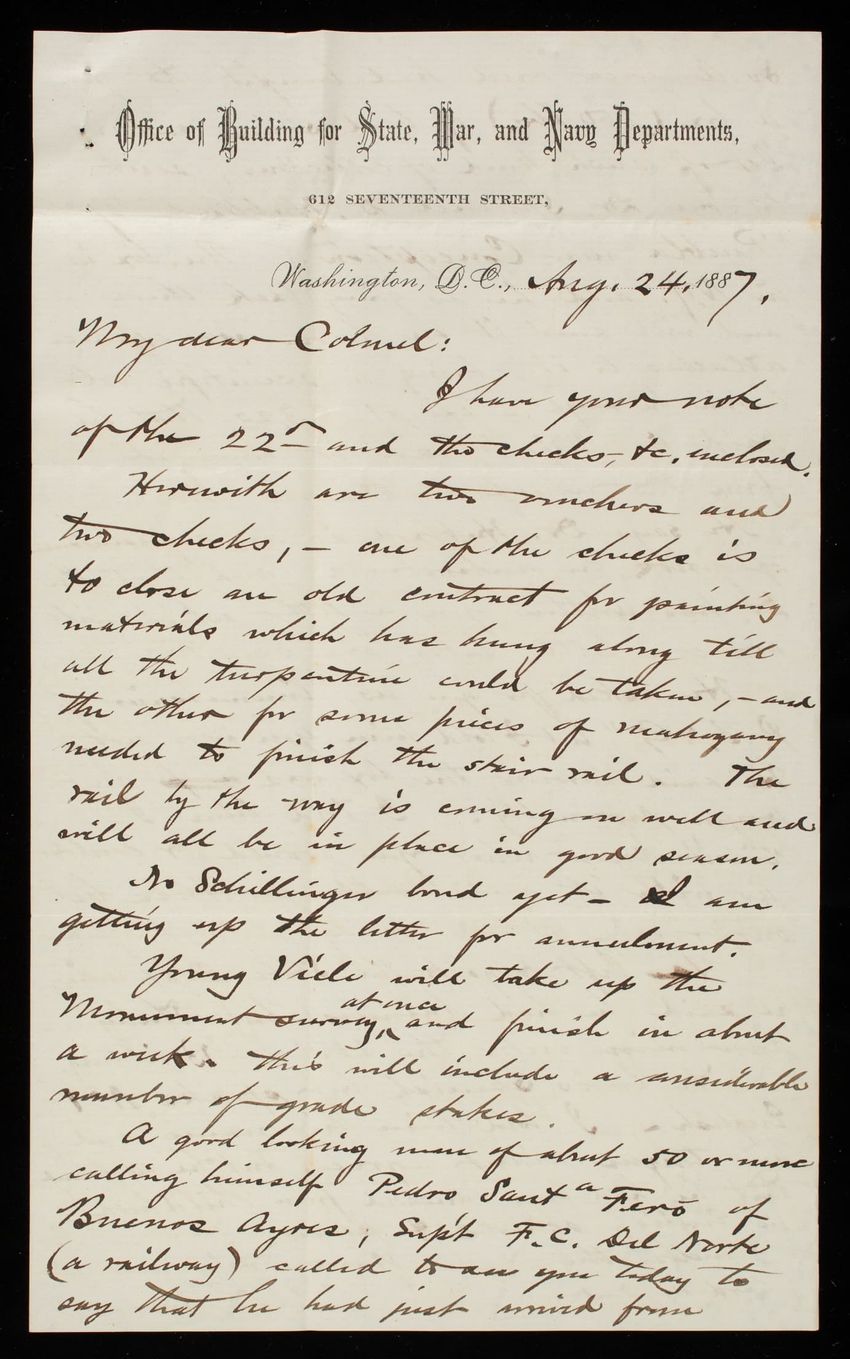 Office of Building for State, War, and Navy Departments,
612 SEVENTEENTH STREET,
Washington, D.C., Aug. 24, 1887.
My dear Colonel:
I have your note
of the 22d and the checks, &c. enclosed.
Herewith are two vouchers and
two checks, – one of the checks is
to close an old contract for painting
materials which has hung along till
all the turpentine could be taken, – and
the other for some pieces of mahogany
needed to finish the stair rail. The
rail by the way is coming on well and
will all be in place in good season.
No Schillinger bond yet – I am
getting up the letter for annulment.
Young Viele will take up the
Monument survey, at once and finish in about
a week. This will include a considerable
number of grade stakes.
A good looking man of about 50 or more
calling himself Pedro Santa Feró of
Buenos Ayres, Supt F.C. Del Norte
(a railway) called to see you today to
say that he had just arrived from